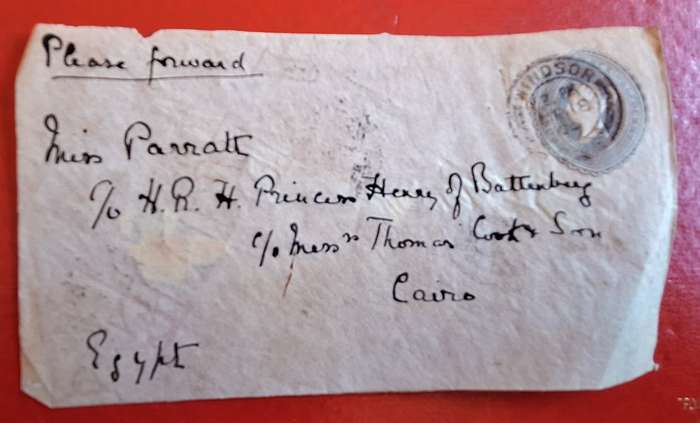 Please forward
WINDSOR
Miss Parratt
c/o H. R. H. Princess Henry of Battenberg
c/o Messrs Thomas Cook & Son
Cairo
Egypt